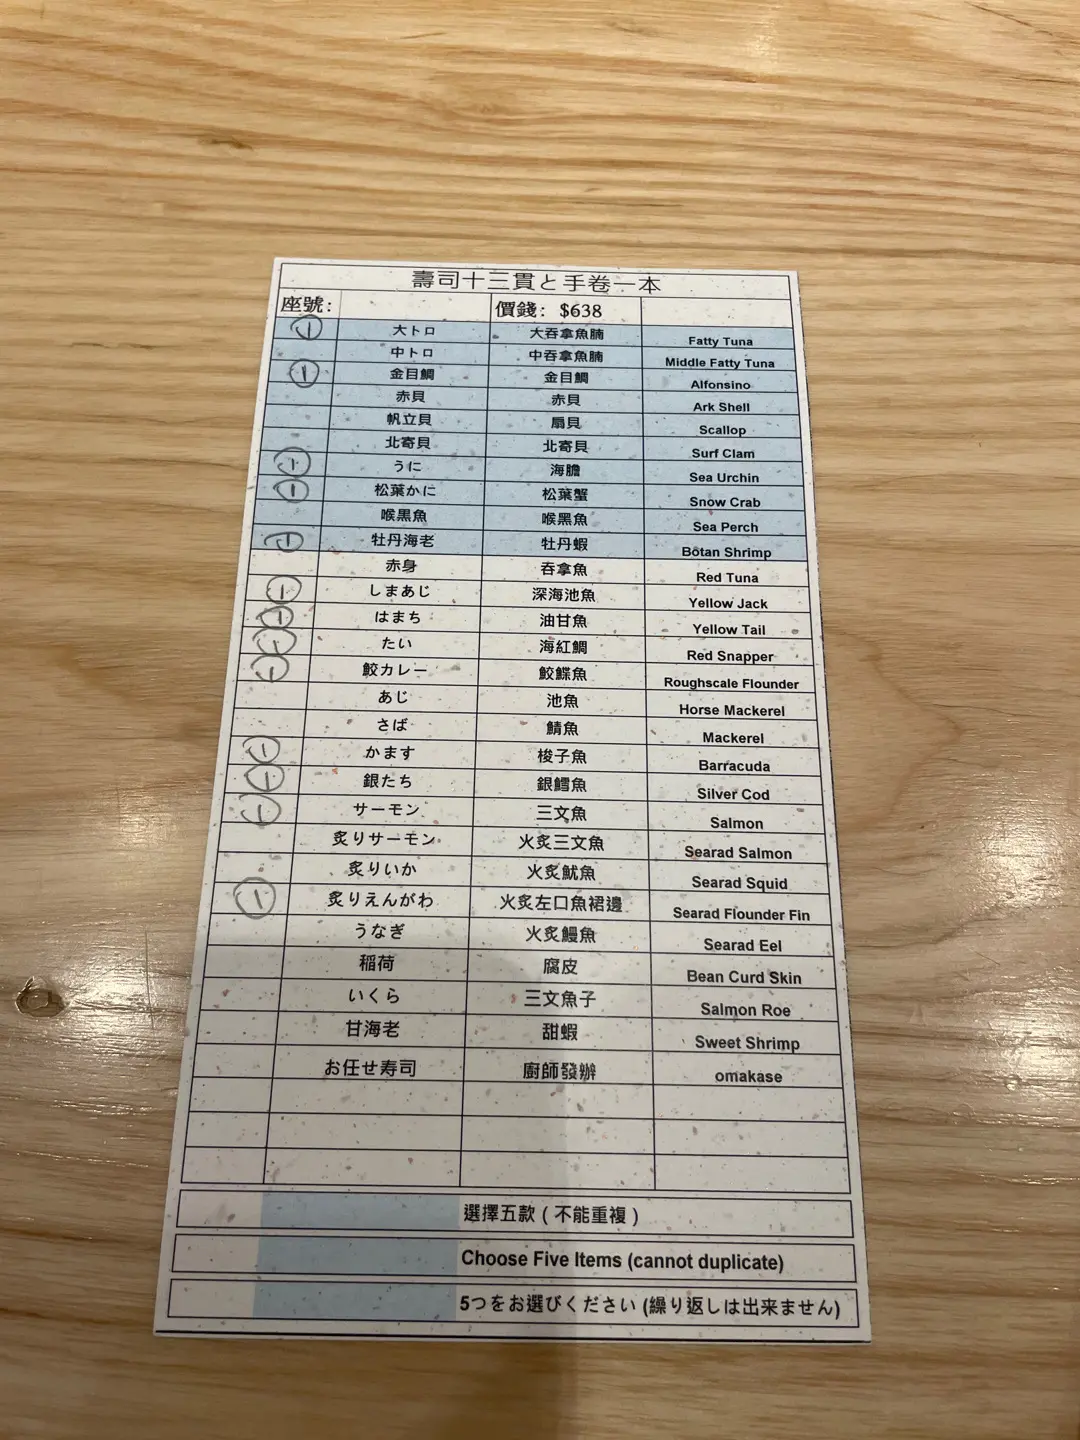 壽司十三貫と手卷一本
座號: 價錢: $638
① 大トロ 大吞拿魚腩 Fatty Tuna
中トロ 中吞拿魚腩 Middle Fatty Tuna
① 金目鯛 金目鯛 Alfonsino
赤貝 赤貝 Ark Shell
帆立貝 扇貝 Scallop
北寄貝 北寄貝 Surf Clam
① うに 海膽 Sea Urchin
① 松葉かに 松葉蟹 Snow Crab
喉黒魚 喉黑魚 Sea Perch
① 牡丹海老 牡丹蝦 Botan Shrimp
赤身 吞拿魚 Red Tuna
① しまあじ 深海池魚 Yellow Jack
① はまち 油甘魚 Yellow Tail
① たい 海紅鯛 Red Snapper
① 鮫カレー 鮫鰈魚 Roughscale Flounder
あじ 池魚 Horse Mackerel
さば 鯖魚 Mackerel
① かます 梭子魚 Barracuda
① 銀たち 銀鱈魚 Silver Cod
① サーモン 三文魚 Salmon
炙りサーモン 火炙三文魚 Searad Salmon
炙りいか 火炙魷魚 Searad Squid
① 炙りえんがわ 火炙左口魚裙邊 Searad Flounder Fin
うなぎ 火炙鰻魚 Searad Eel
稲荷 腐皮 Bean Curd Skin
いくら 三文魚子 Salmon Roe
甘海老 甜蝦 Sweet Shrimp
お任せ寿司 廚師發辦 omakase
選擇五款 ( 不能重複 )
Choose Five Items (cannot duplicate)
5つをお選びください (繰り返しは出来ません)